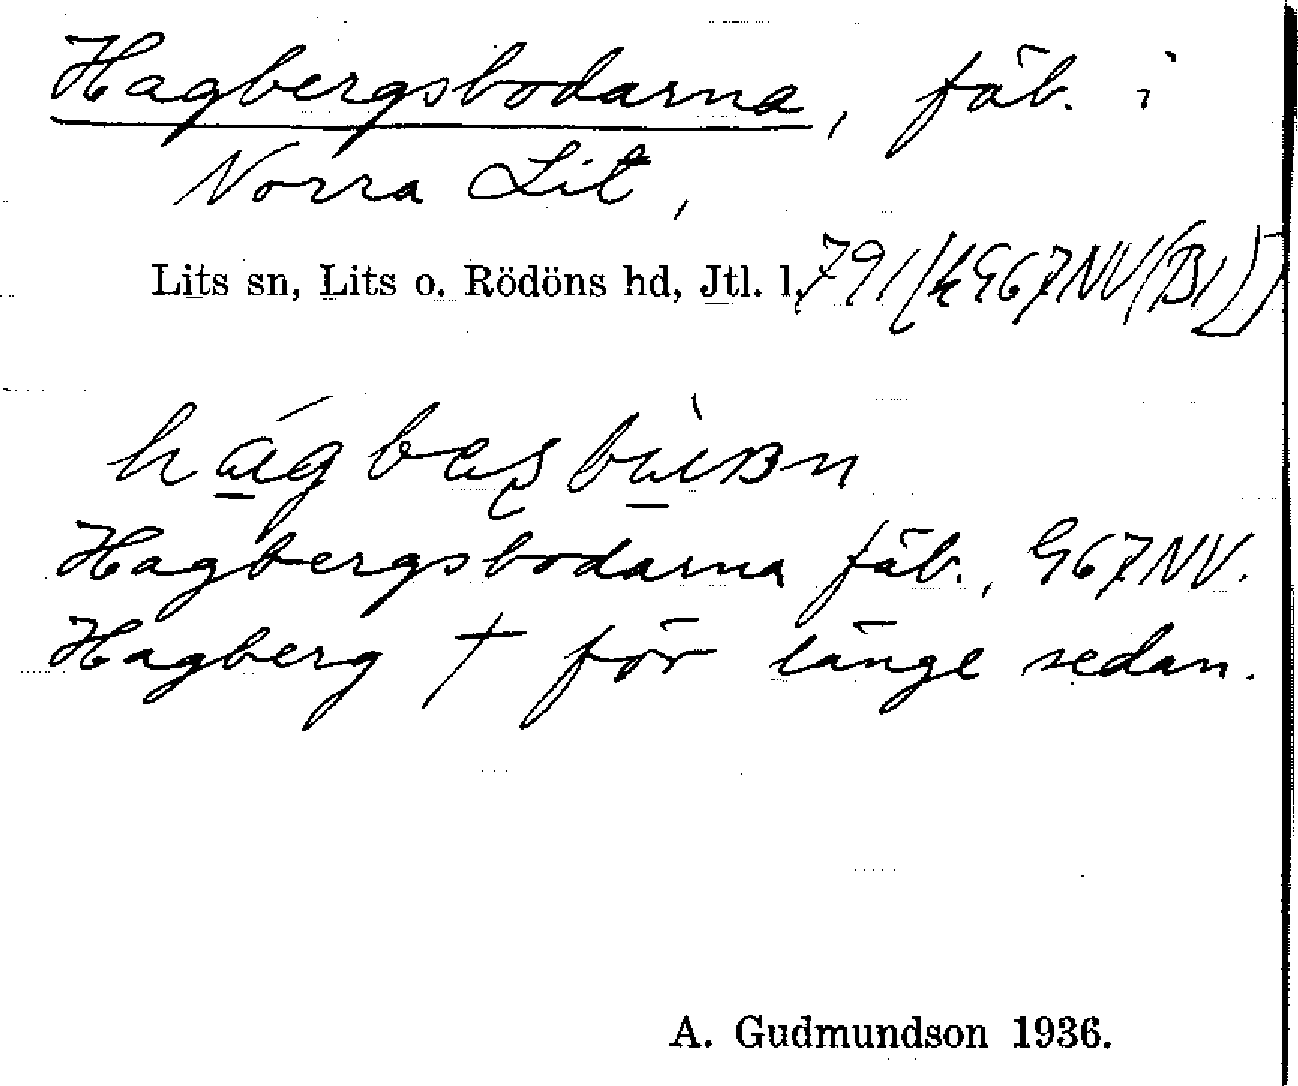 Hagbergsbodarna, fäb. i
Norra Lit,
Lits sn, Lits o. Rödöns hd, Jtl. l.
Hagbergsbodarna fäb., G67NV.
Hagberg † för länge sedan.
A. Gudmundson 1936.